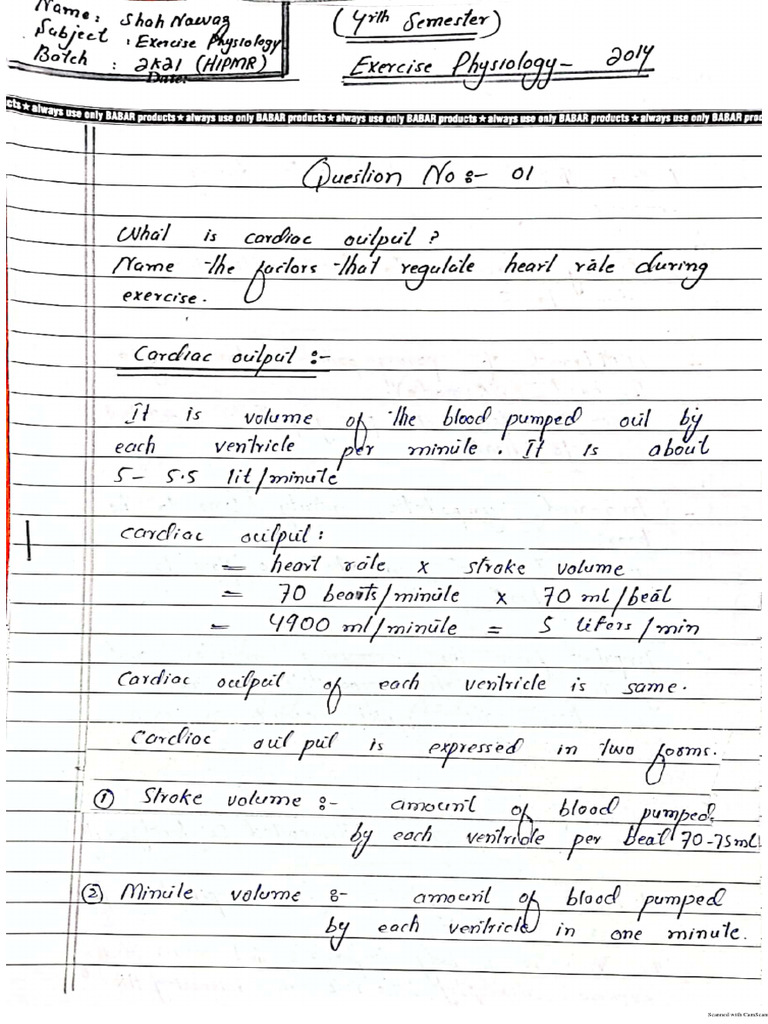 Name: Shah Nawaz
Subject : Exercise Physiology
Batch : 2k21 (HIPMR)
Date:
(4rth Semester)
Exercise Physiology- 2014
cts ★ always use only BABAR products ★ always use only BABAR products ★ always use only BABAR products ★ always use only BABAR products ★ always use only BABAR proc
Question No :- 01
What is cardiac output ?
Name the factors that regulate heart rate during
exercise.
Cardiac output :-
It is volume of the blood pumped out by
each ventricle per minute. It is about
5- 5.5 lit/minute
Cardiac output :
= heart rate x stroke volume
= 70 beats/minute x 70 ml/beat
= 4900 ml/minute = 5 liters/min
Cardiac output of each ventricle is same.
Cardiac output is expressed in two forms.
① Stroke volume :- amount of blood pumped
by each ventricle per beat 70-75ml
② Minute volume :- amount of blood pumped
by each ventricle in one minute.
Scanned with CamScan